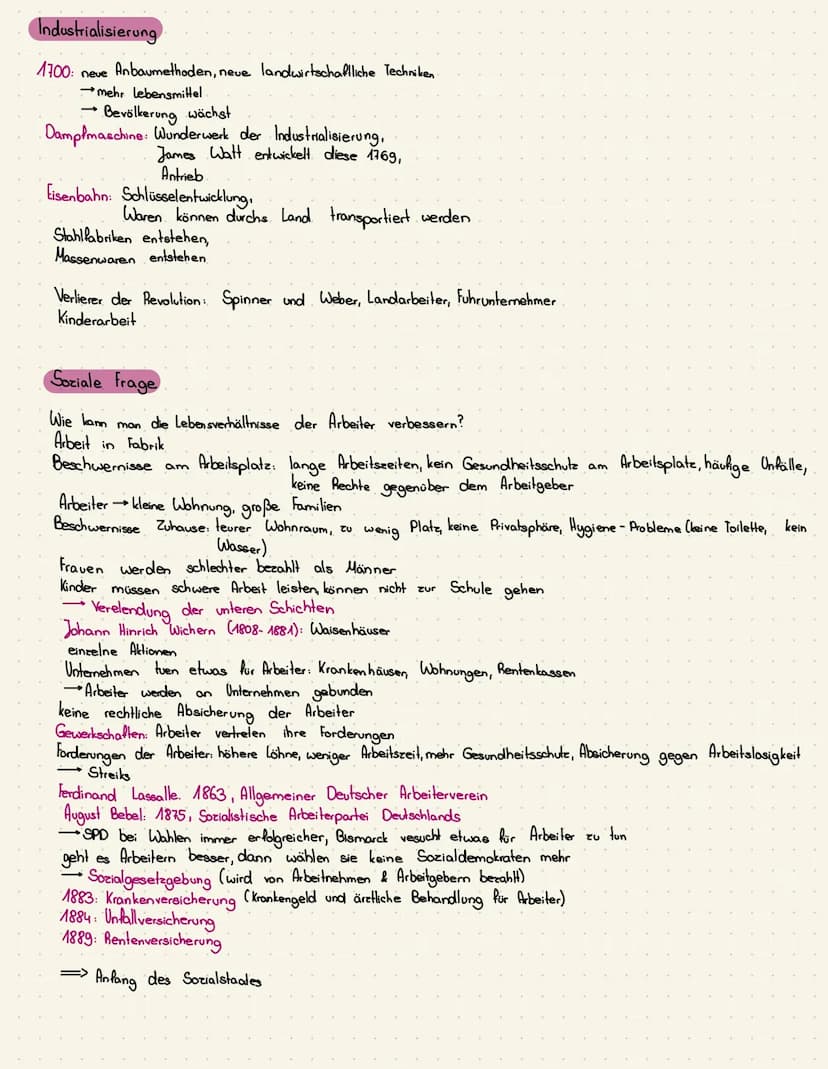 Industrialisierung
1700: neue Anbaumethoden, neue landwirtschaftliche Techniken
→ mehr Lebensmittel
→ Bevölkerung wächst
Dampfmaschine: Wunderwerk der Industrialisierung,
James Watt entwickelt diese 1769,
Antrieb
Eisenbahn: Schlüsselentwicklung,
Waren können durchs Land transportiert werden
Stahlfabriken entstehen,
Massenwaren entstehen
Verlierer der Revolution: Spinner und Weber, Landarbeiter, Fuhrunternehmer
Kinderarbeit
Soziale Frage
Wie kann man die Lebensverhältnisse der Arbeiter verbessern?
Arbeit in Fabrik
Beschwernisse am Arbeitsplatz: lange Arbeitszeiten, kein Gesundheitsschutz am Arbeitsplatz, häufige Unfälle,
keine Rechte gegenüber dem Arbeitgeber
Arbeiter → kleine Wohnung, große Familien
Beschwernisse Zuhause: teurer Wohnraum, zu wenig Platz, keine Privatsphäre, Hygiene-Probleme (keine Toilette, kein
Wasser)
Frauen werden schlechter bezahlt als Männer
Kinder müssen schwere Arbeit leisten, können nicht zur Schule gehen
→ Verelendung der unteren Schichten
Johann Hinrich Wichern (1808-1881): Waisenhäuser
einzelne Aktionen
Unternehmen tuen etwas für Arbeiter: Krankenhäuser, Wohnungen, Rentenkassen
→ Arbeiter werden an Unternehmen gebunden
keine rechtliche Absicherung der Arbeiter
Gewerkschaften: Arbeiter vertreten ihre Forderungen
Forderungen der Arbeiter: höhere Löhne, weniger Arbeitszeit, mehr Gesundheitsschutz, Absicherung gegen Arbeitslosigkeit
→ Streiks
Ferdinand Lassalle: 1863, Allgemeiner Deutscher Arbeiterverein
August Bebel: 1875, Sozialistische Arbeiterpartei Deutschlands
→ SPD bei Wahlen immer erfolgreicher, Bismarck vesucht etwas für Arbeiter zu tun
geht es Arbeitern besser, dann wählen sie keine Sozialdemokraten mehr
→ Sozialgesetzgebung (wird von Arbeitnehmen & Arbeitgebern bezahlt)
1883: Krankenversicherung (Krankengeld und ärztliche Behandlung für Arbeiter)
1884: Unfallversicherung
1889: Rentenversicherung
⟹ Anfang des Sozialstaates